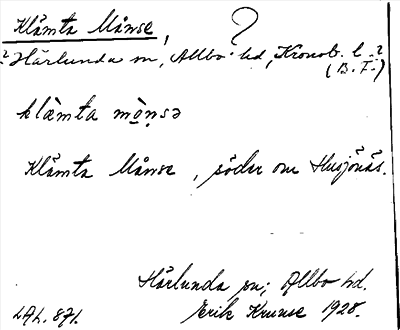 Klämta Månse, ?
? Härlunda sn, Allbo hd, Kronob. l ?
(B.F.)
klämta mɷ̀n̥sə
Klämta Månse, söder om Husjönäs.
Härlunda sn; Allbo hd.
LAL. 871. Erik Kruuse 1928.